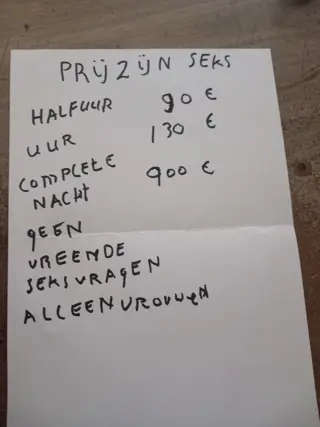 PRIJZIJN SEKS
HALFUUR 90 €
UUR 130 €
COMPLETE 900 €
NACHT
GEEN
VREENDE
SEKSVRAGEN
ALLEENVROUWEN